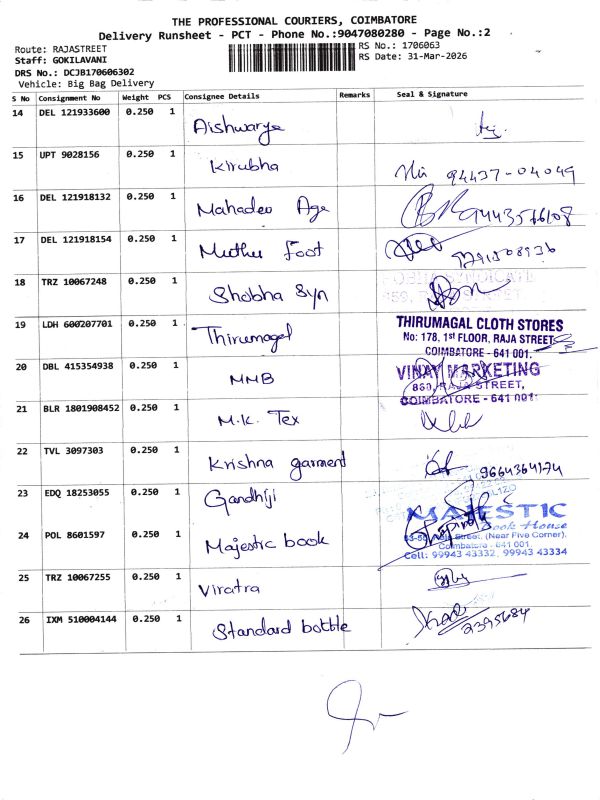 THE PROFESSIONAL COURIERS, COIMBATORE
Delivery Runsheet - PCT - Phone No.:9047080280 - Page No.:2
Route: RAJASTREET
RS No.: 1706063
Staff: GOKILAVANI
RS Date: 31-Mar-2026
DRS No.: DCJB170606302
Vehicle: Big Bag Delivery
S No Consignment No Weight PCS Consignee Details Remarks Seal & Signature
14 DEL 121933600 0.250 1 Aishwarya
15 UPT 9028156 0.250 1 Kirubha 94437-04049
16 DEL 121918132 0.250 1 Mahadev Age 9443576108
17 DEL 121918154 0.250 1 Muthu Foot
18 TRZ 10067248 0.250 1 Shobha Syn
19 LDH 600207701 0.250 1 Thirumagal
THIRUMAGAL CLOTH STORES
No: 178, 1st FLOOR, RAJA STREET
COIMBATORE - 641 001.
20 DBL 415354938 0.250 1 MMB
VINAY MARKETING
RAJA STREET,
COIMBATORE - 641 001.
21 BLR 1801908452 0.250 1 M.K. Tex
22 TVL 3097303 0.250 1 Krishna garment 9664364174
23 EDQ 18253055 0.250 1 Gandhiji
24 POL 8601597 0.250 1 Majestic book
MAJESTIC
Book House
Street, (Near Five Corner),
Coimbatore - 641 001.
Cell: 99943 43332, 99943 43334
25 TRZ 10067255 0.250 1 Viratra
26 IXM 510004144 0.250 1 Standard bottle 2395684